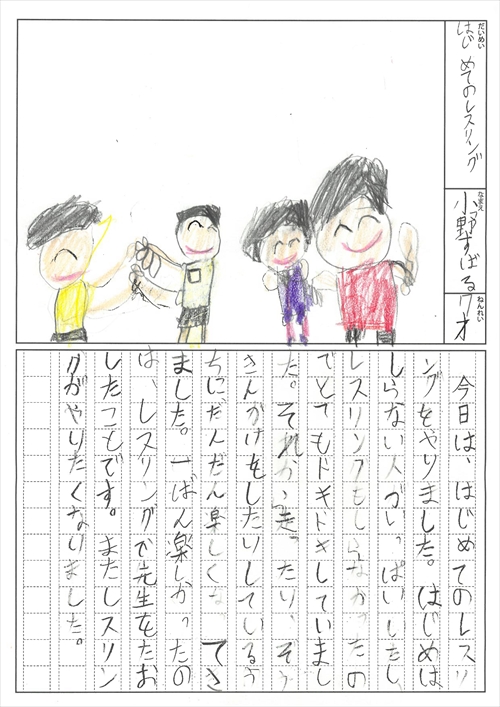 だいめい
はじめてのレスリング
なまえ
小野すばる
ねんれい
7才
今日は、はじめてのレスリ
ングをやりました。はじめは
しらない人がいっぱいしたし、
レスリングもしらなかったの
でとてもドキドキしていまし
た。それから、走ったり、ぞう
きんがけをしたりしているう
ちにだんだん楽しくな てき
ました。一ばん楽しかったの
は、レスリングで先生をたお
したことです。またレスリン
グがやりたくなりました。